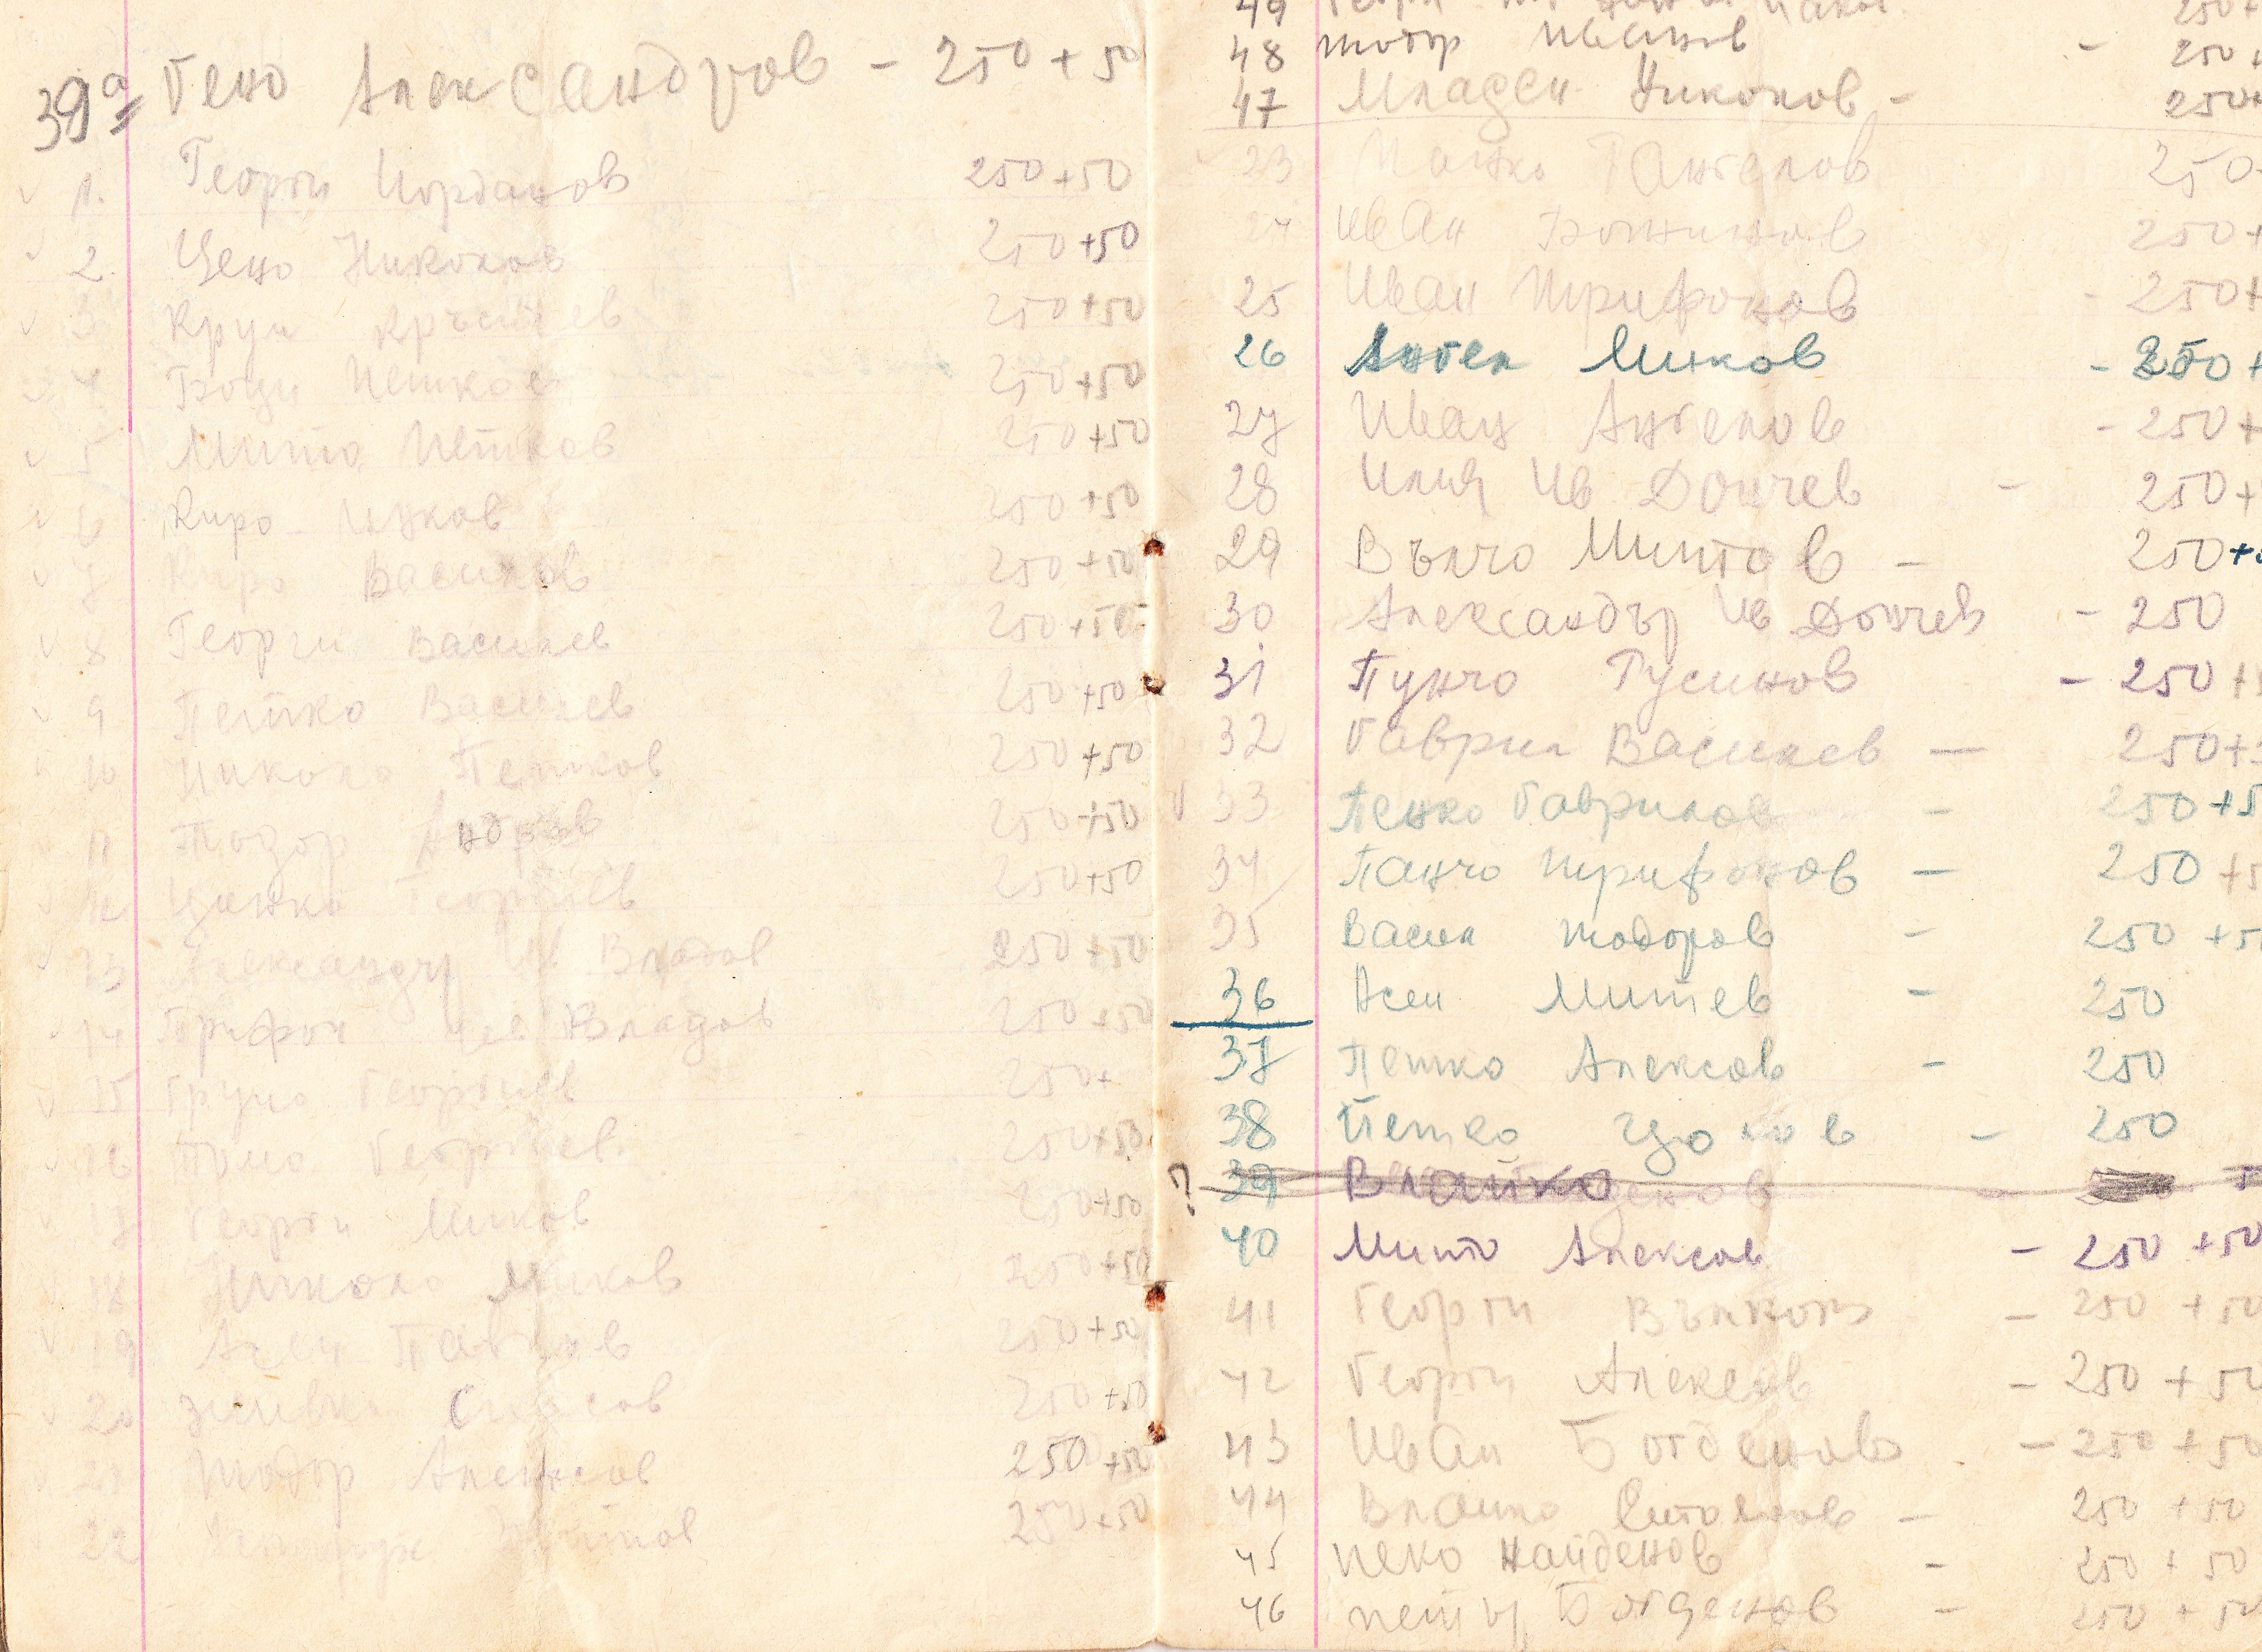 39а Гено Александров - 250 + 50
1. Георги Иорданов 250+50
2. Цено Николов 250+50
3 Крум Кръстев 250+50
4 Боци Петков 250+50
5 Мито Петков 250+50
6 Киро Цеков 250+50
7 Киро Василов 250+50
8 Георги Василев 250+50
9 Петко Василев 250+50
10 Никола Петков 250+50
11 Тодор 250+50
12 Цанко Георгиев 250+50
13 Александър Ив Владов 250+50
14 Трифон Владов 250+50
15 Георгиев 250+
16 Георгиев 250+50
17 Георги Миков 250+50
18 Никола Миков 250+50
19 Асен Павлов 250+50
20 Живко Спасов 250+50
21 Тодор Алексов 250+50
22 250+50
49
48 Тодор Иванов - 250
47 Младен Николов - 250
23 Ангелов 250
24 Иван Божинов 250+
25 Иван Трифонов - 250+
26 Ангел Минков - 250+
27 Иван Ангелов - 250+
28 Илия Ив Дончев - 250+
29 Вълчо Митов - 250+
30 Александър Ив Дончев - 250
31 Пунчо Русинов - 250+
32 Гаврил Василев - 250+
33 Пенко Гаврилов - 250+5
34 Панчо Трифонов - 250+5
35 Васил Тодоров - 250+5
36 Асен Митев - 250
37 Петко Алексов - 250
38 Петко Цолов - 250
? 39 Влайко
40 Мито Алексов - 250 +50
41 Георги Вълков - 250 +50
42 Георги Алексов - 250 +50
43 Иван Богденов - 250 +50
44 Влайко Стоянов - 250 +50
45 Пеко Найденов - 250 + 50
46 Петър Богденов - 250 + 50